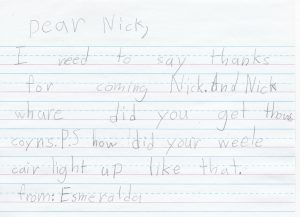 Dear Nick,
I need to say thanks
for coming Nick. And Nick
whare did you get those
coyns. P.S how did your weele
cair light up like that.
from: Esmeralda